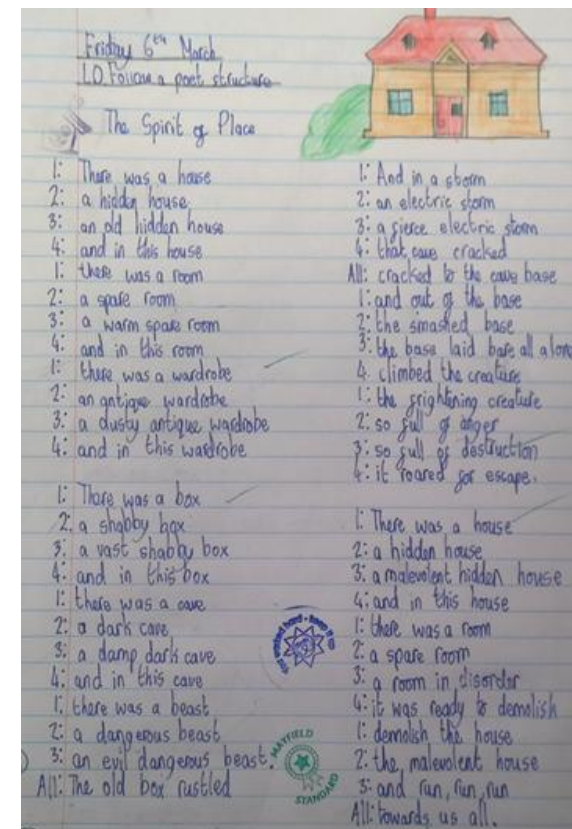 Friday 6th March
LO. Follow a poet structure
The Spirit of Place
1: There was a house
2: a hidden house
3: an old hidden house
4: and in this house
1: there was a room
2: a spare room
3: a warm spare room
4: and in this room
1: there was a wardrobe
2: an antique wardrobe
3: a dusty antique wardrobe
4: and in this wardrobe
1: There was a box
2: a shabby box
3: a vast shabby box
4: and in this box
1: there was a cave
2: a dark cave
3: a damp dark cave
4: and in this cave
1: there was a beast
2: a dangerous beast
3: an evil dangerous beast.
All: The old box rustled
1: And in a storm
2: an electric storm
3: a fierce electric storm
4: that cave cracked
All: cracked to the cave base
1: and out of the base
2: the smashed base
3: the base laid bare all alone
4. climbed the creature
1: the frightening creature
2: so full of anger
3: so full of destruction
4: it roared for escape.
1: There was a house
2: a hidden house
3: a malevolent hidden house
4: and in this house
1: there was a room
2: a spare room
3: a room in disorder
4: it was ready to demolish
1: demolish the house
2: the malevolent house
3: and run, run, run
All: towards us all.
You worked hard - keep it up
MAYFIELD
STANDARD